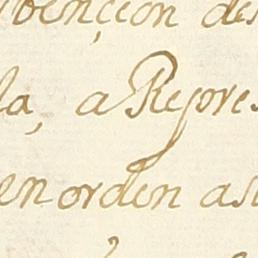 vencion des
la, a Repres
en orden as